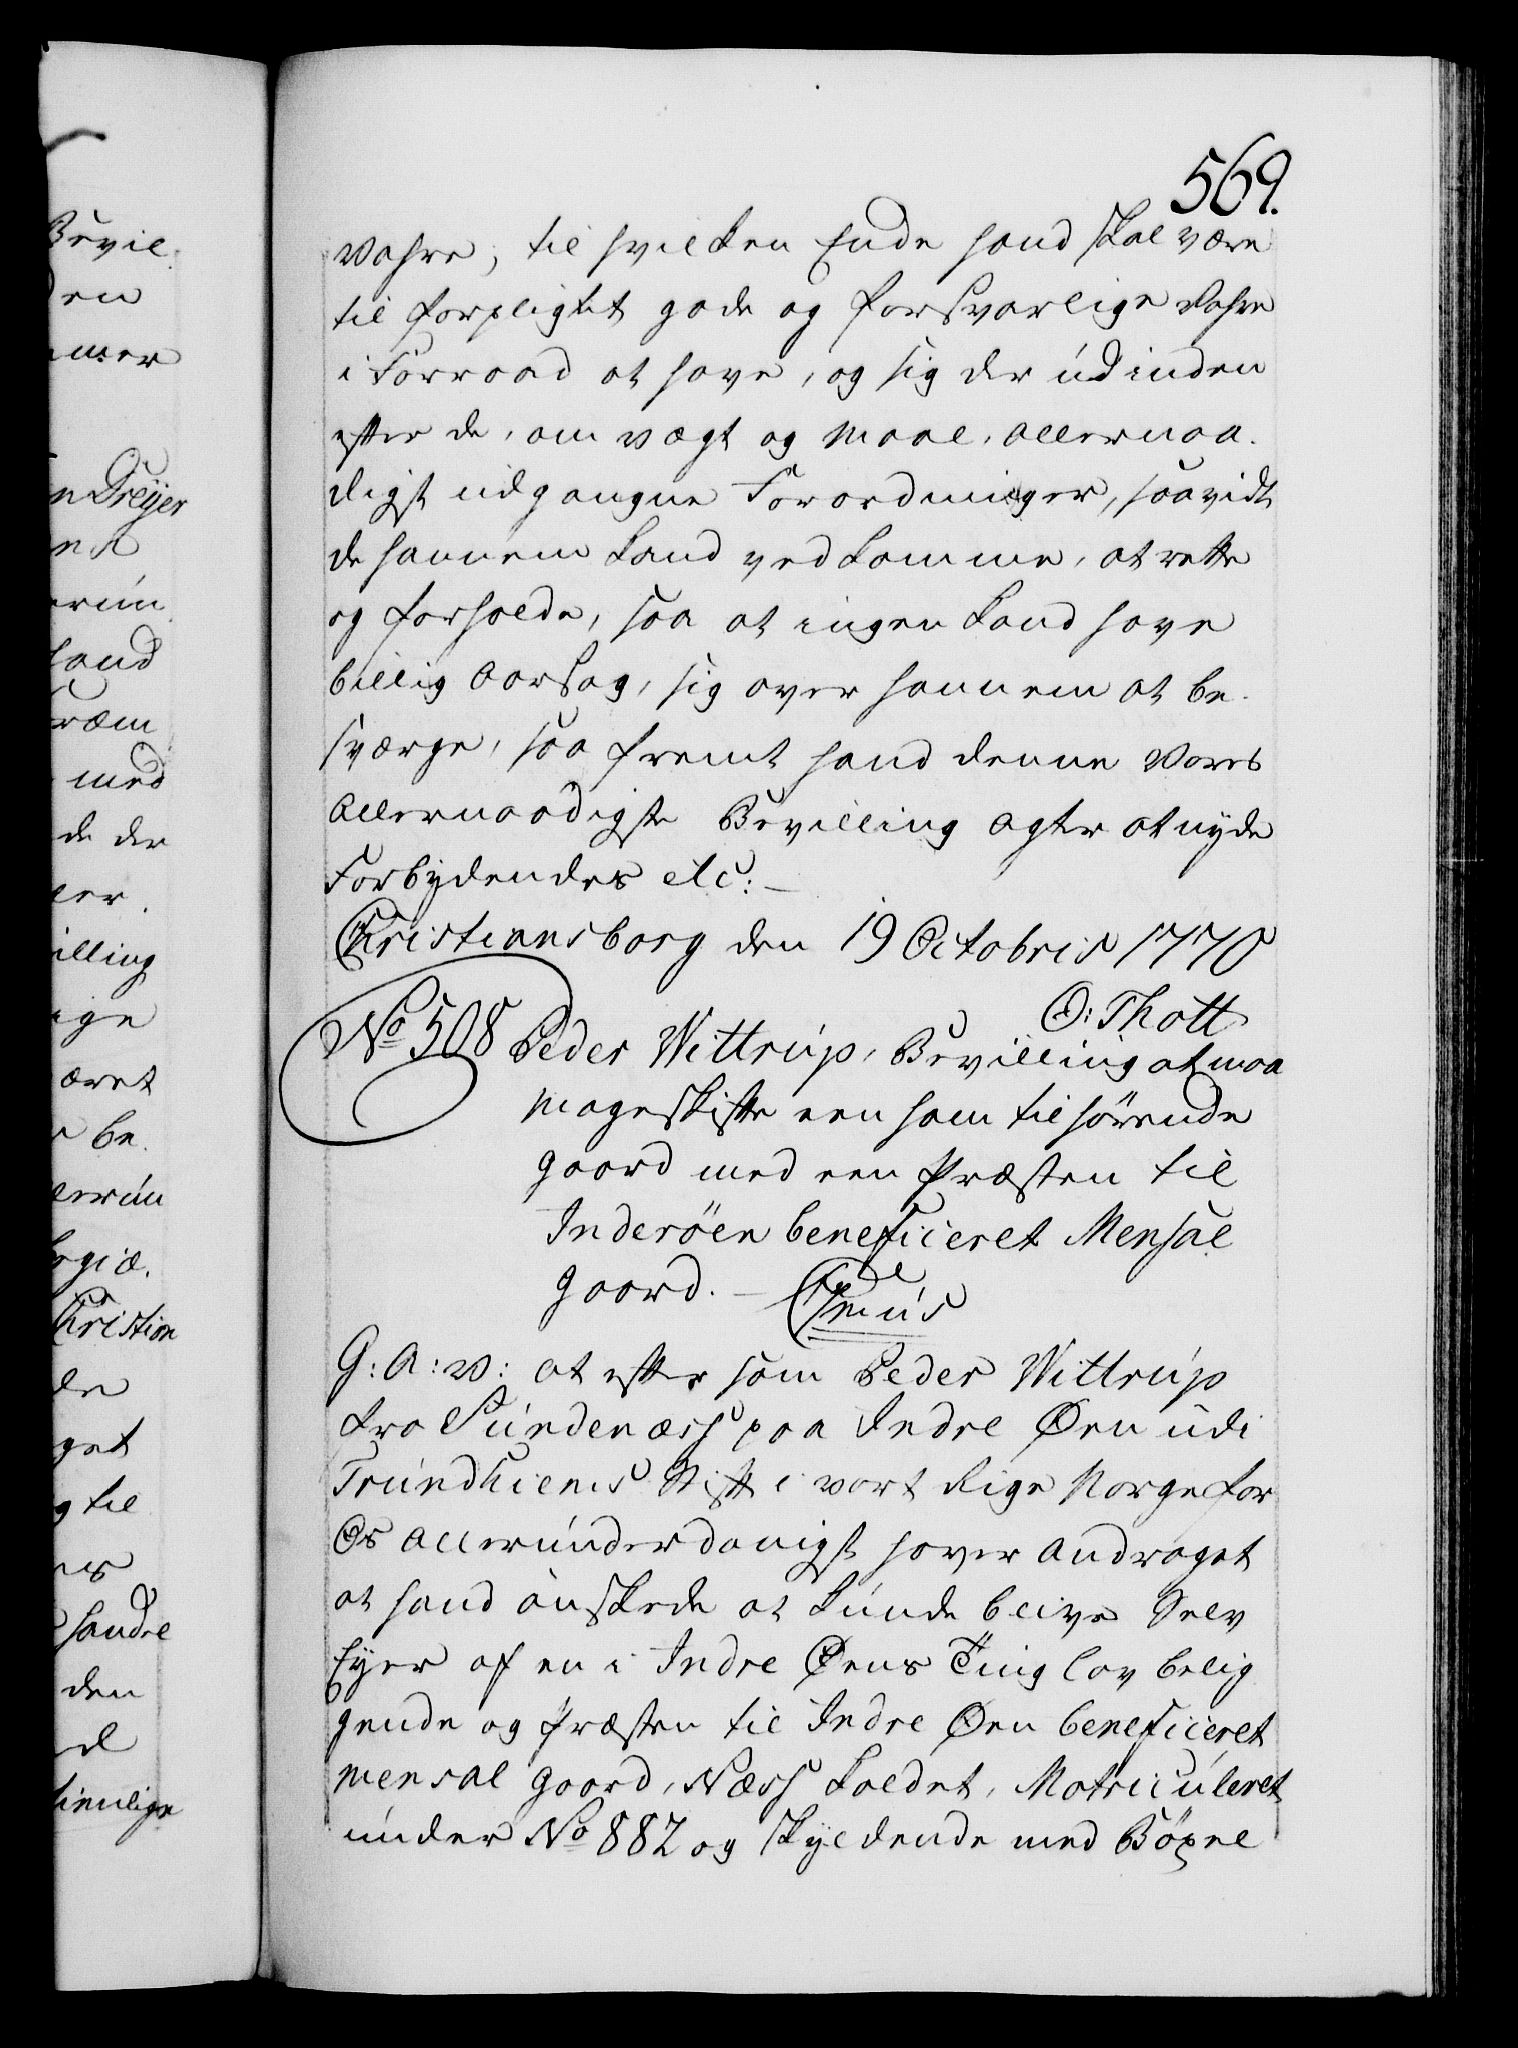 569.
Vahre, til hvilken Ende hand skal være
til forpligtet gode og forsvarlige Vahre
i Forraad at have, og sig der udinden
efter de, om vægt og Maal, allernaa-
digst udgangne Forordninger, saavidt
de hannem kand vedkomme, at rette
og forholde, saa at ingen kand have
billig Aarsag, sig over hannem at be-
sværge, saa fremt hand denne Vores
Allernaadigste Bevilling agter at nyde
Forbydendes etc:
Christiansborg den 19 Octobris 1770
O: Thott
No 508 Peder Wittrup, Bevilling at maa
Mageskifte een ham tilhørende
gaard med een Præsten til
Inderöen beneficeret Mensal
gaard. —
G: A: V: at efter som Peder Wittrup
fra Sundenæss paa Indre Øen udi
Trundhiems Stift i vort Rige Norge for
Os allerunderdanigst haver andraget
at hand ønskede at kunde blive Selv
Eyer af en i Indre Øens Ting lav belig
gende og Præsten til Indre Øen beneficeret
mensal gaard, Næss kaldet, Matriculeret
under No 882 og skyldende med Böxel
Bevil-
en
mer
n Dreyer
rum
hand
ræm
med
de der
er.
illing
ige
æret
be-
erum
Christian
de
get
g til
handel
den
tienlige